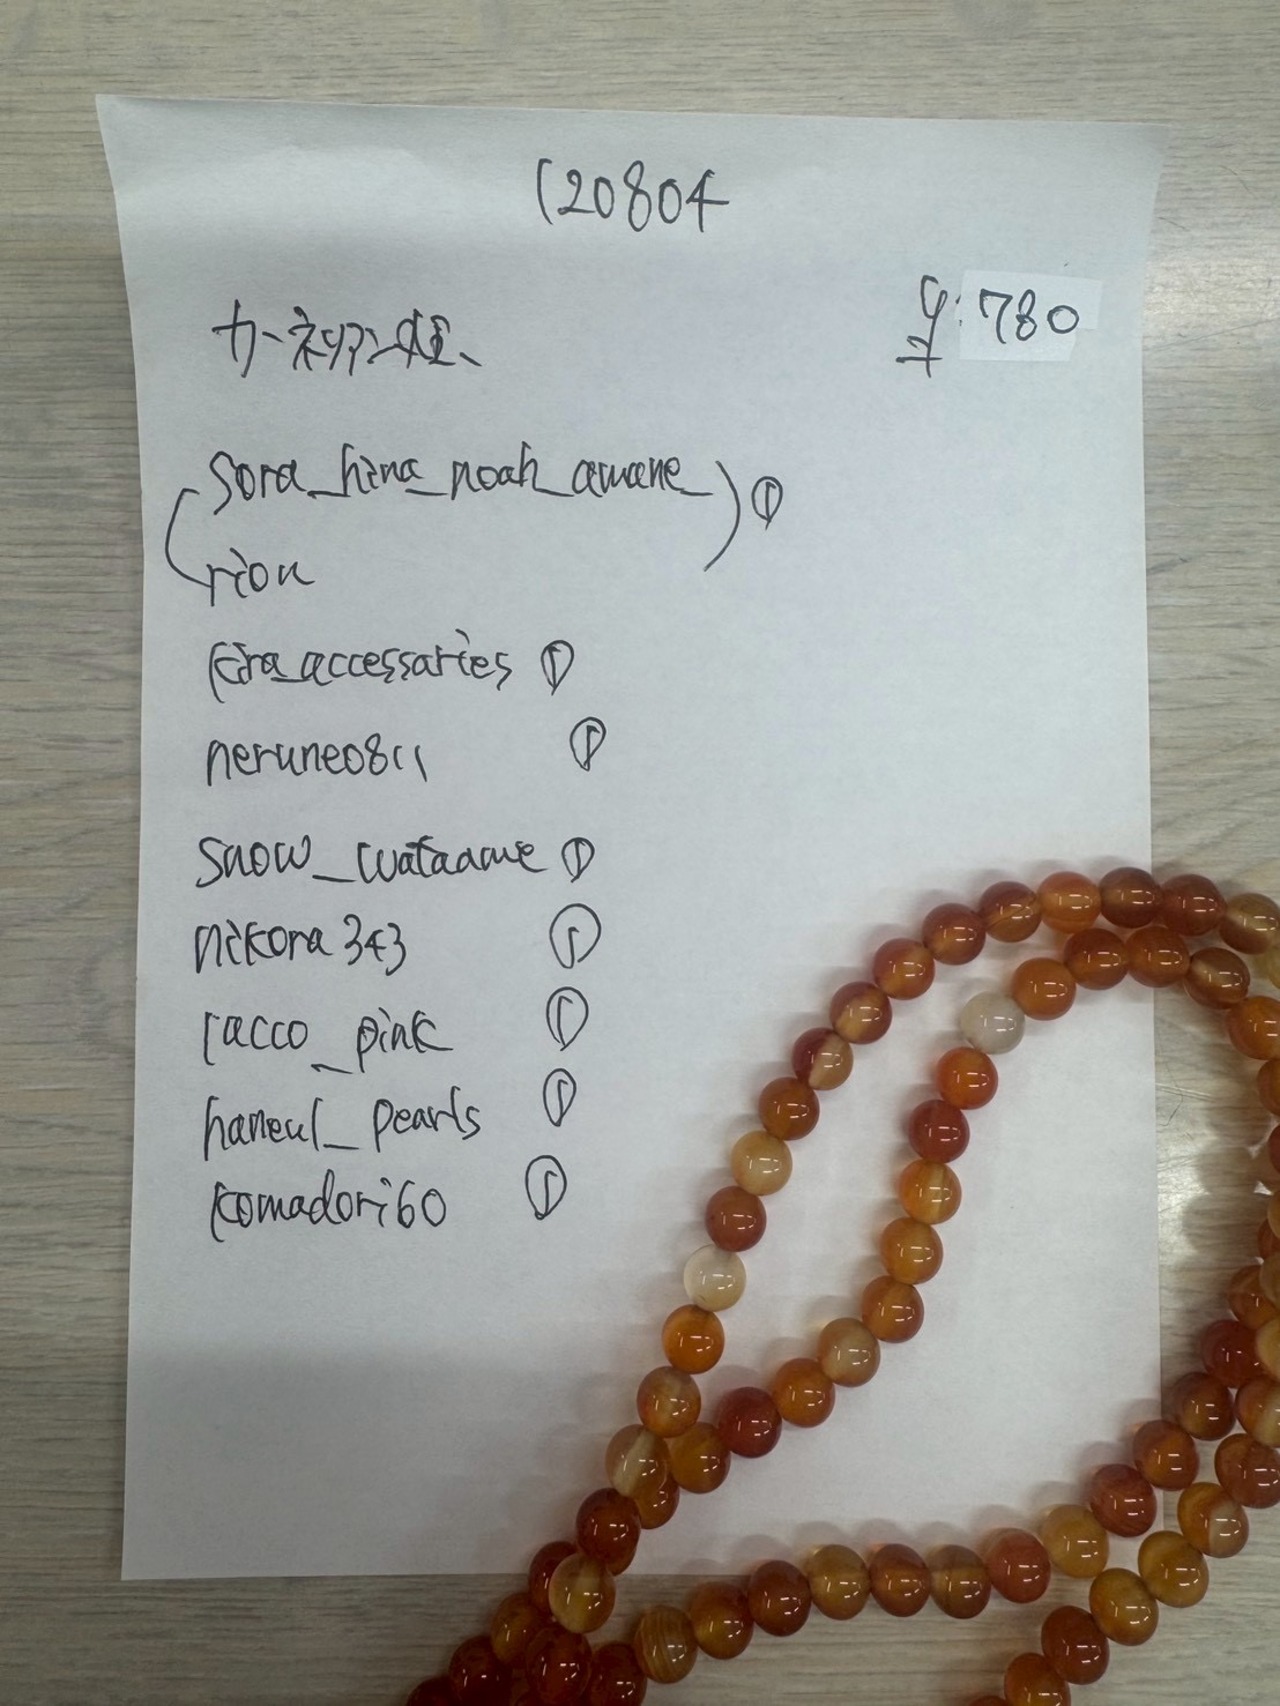 120804
カーネリアン
780
sora_hina_noah_awane_ ①
rion
kira_accessaries ①
nerune0811 ①
snow_wataame ①
nikora343 ①
racco_pink ①
haneul_pearls ①
komadori60 ①